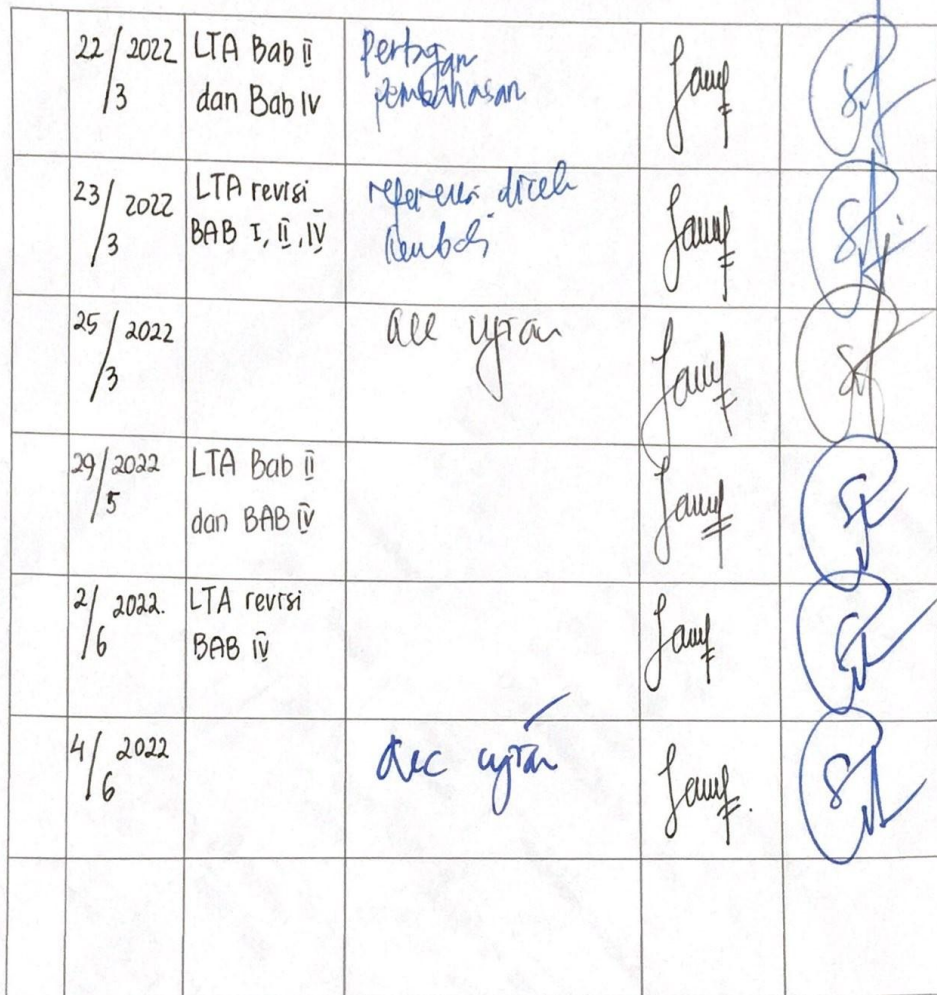 22/3 2022 LTA Bab II
dan Bab IV
Pertajam
pembahasan
23/3 2022 LTA revisi
BAB I, II, IV
referensi dicek
kembali
25/3 2022
acc ujian
29/5 2022 LTA Bab II
dan BAB IV
2/6 2022. LTA revisi
BAB IV
4/6 2022
acc ujian